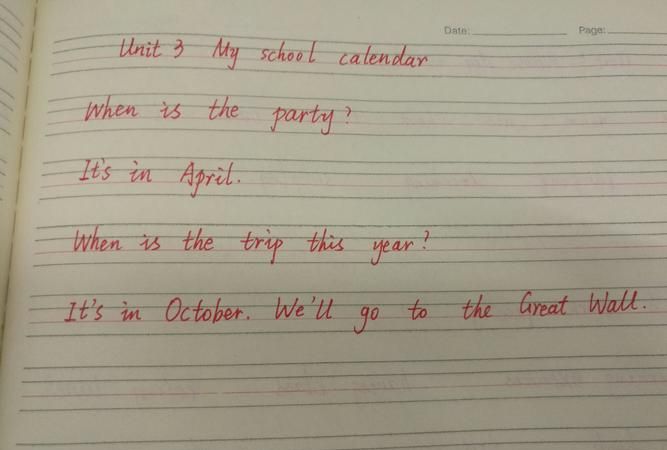 Date: Page:
Unit 3 My school calendar
When is the party?
It's in April.
When is the trip this year?
It's in October. We'll go to the Great Wall.